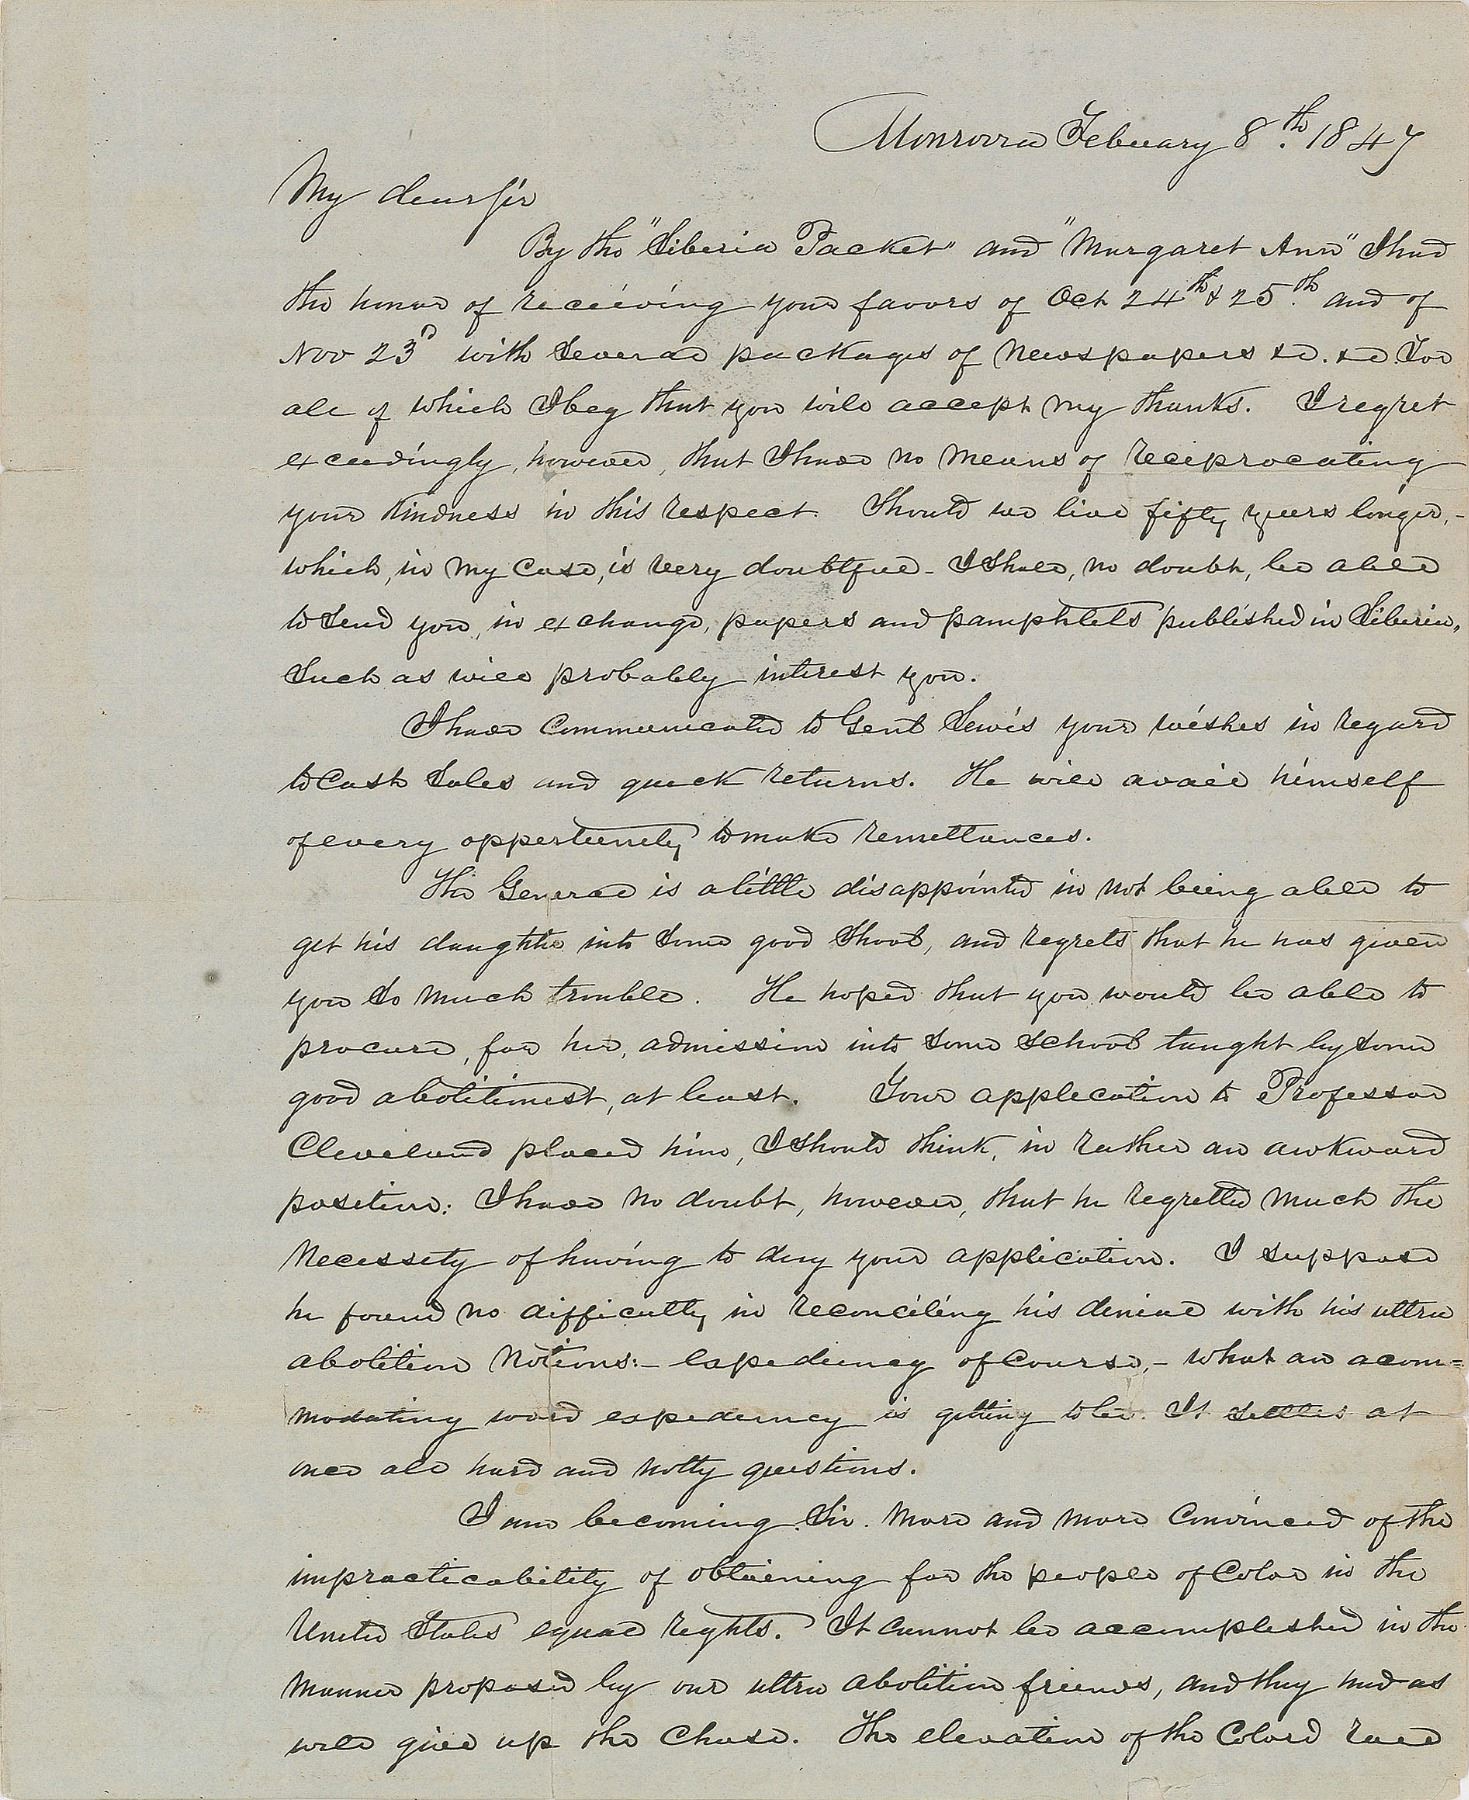 Monrovia February 8.th 1847
My dear sir
By the "Liberia Packet" and "Margaret Ann" I had
the honor of receiving your favors of Oct 24th & 25.th and of
Nov 23d with several packages of newspapers &c. &c. For
all of which I beg that you will accept my thanks. I regret
exceedingly, however, that I have no means of reciprocating
your kindness in this respect. Should we live fifty years longer,-
which, in my case, is very doubtful - I shall, no doubt, be able
to send you, in exchange, papers and pamphlets published in Liberia,
such as will probably interest you.
I have communicated to Genl Lewis your wishes in regard
to cash sales and quick returns. He will avail himself
of every oppertunity to make remittances.
The General is a little disappointed in not being able to
get his daughter into some good shool, and regrets that he has given
you so much trouble. He hoped that you would be able to
procure, for her, admission into some school taught by some
good abolitionist, at least. Your application to Professor
Cleveland placed him, I should think, in rather an awkward
position: I have no doubt, however, that he regretted much the
necessity of having to deny your application. I suppose
he found no difficulty in reconciling his denial with his ultra
abolition notions:- expediency of course,- what an acom=
modating word expediency is getting to be. It settles at
once all hard and notty questions.
I am becoming, Sir. more and more convinced of the
impracticability of obtaining for the people of color in the
United States equal rights. It cannot be accomplished in the
manner proposed by our ultra abolition friends, and they had as
well give up the chase. The elevation of the colord race